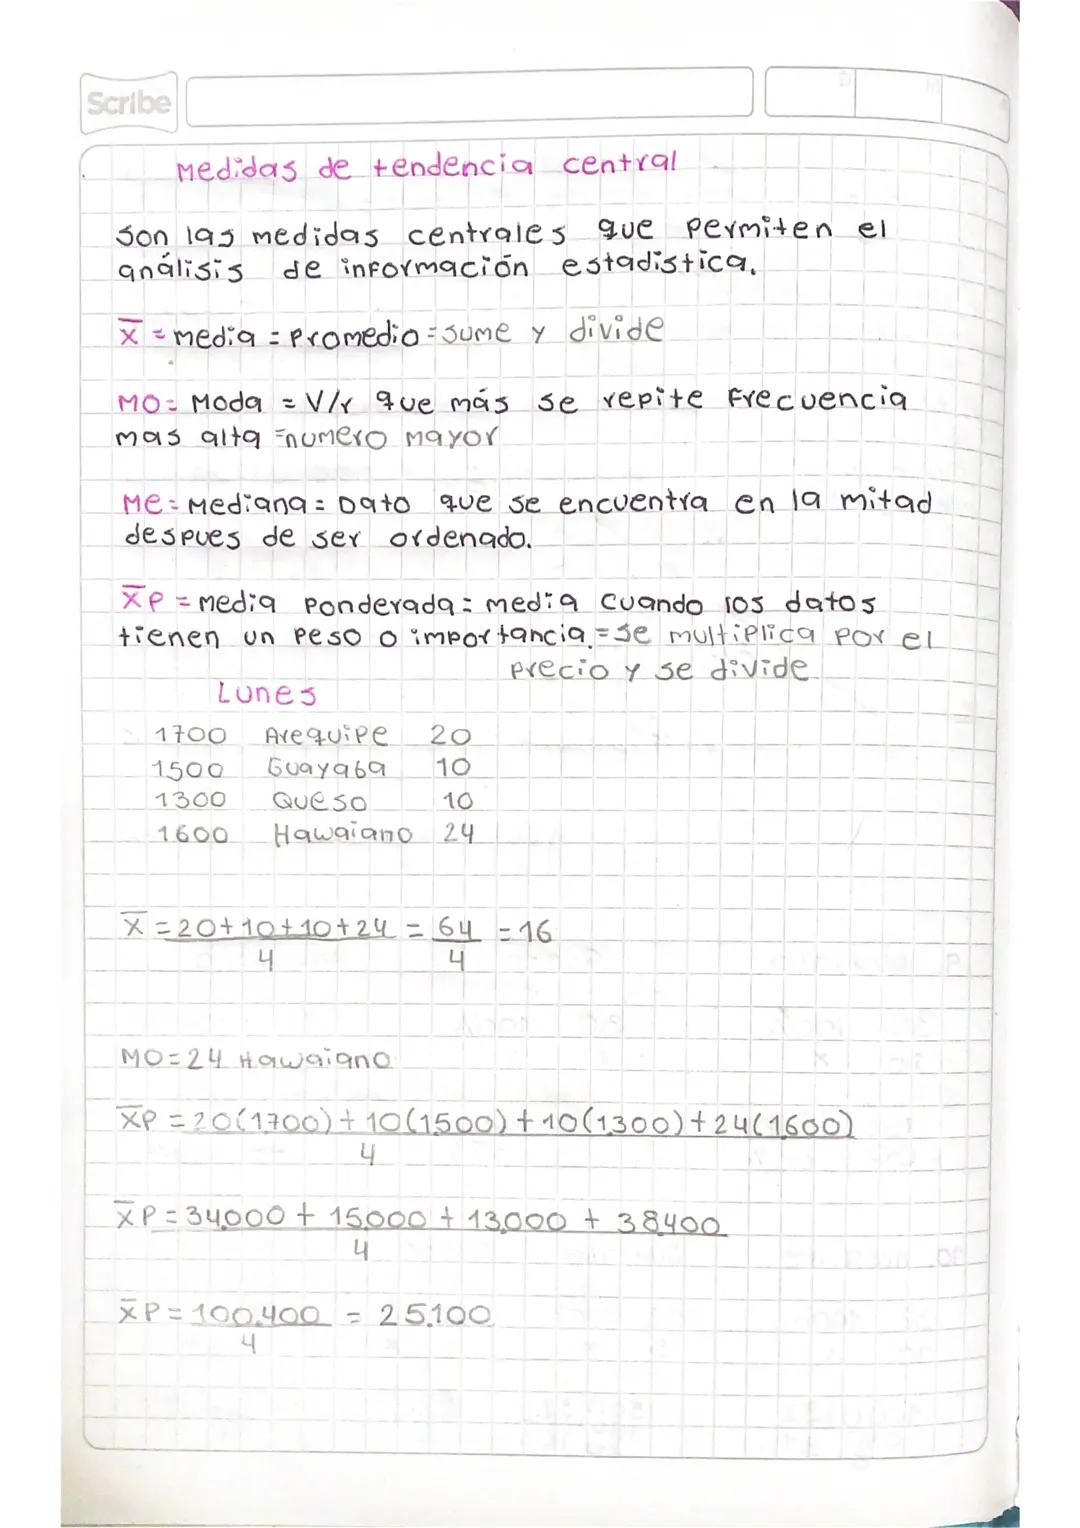 Scribe
Medidas de tendencia central
Son las medidas centrales que permiten el
análisis de información estadistica.
X̅ = media = Promedio = sume y divide
MO = Moda = V/r que más se repite Frecuencia
mas alta = numero mayor
Me = Mediana = Dato que se encuentra en la mitad
despues de ser ordenado.
X̅P = media Ponderada = media cuando los datos
tienen un peso o importancia. = se multiplica por el
precio y se divide
Lunes
1700 Arequipe 20
1500 Guayaba 10
1300 Queso 10
1600 Hawaiano 24
X̅ = 20+10+10+24 = 64 = 16
4 4
MO = 24 Hawaiano
X̅P = 20(1.700) + 10(1.500) + 10(1.300) + 24(1.600)
4
X̅P = 34.000 + 15.000 + 13.000 + 38.400
4
X̅P = 100.400 = 25.100
4